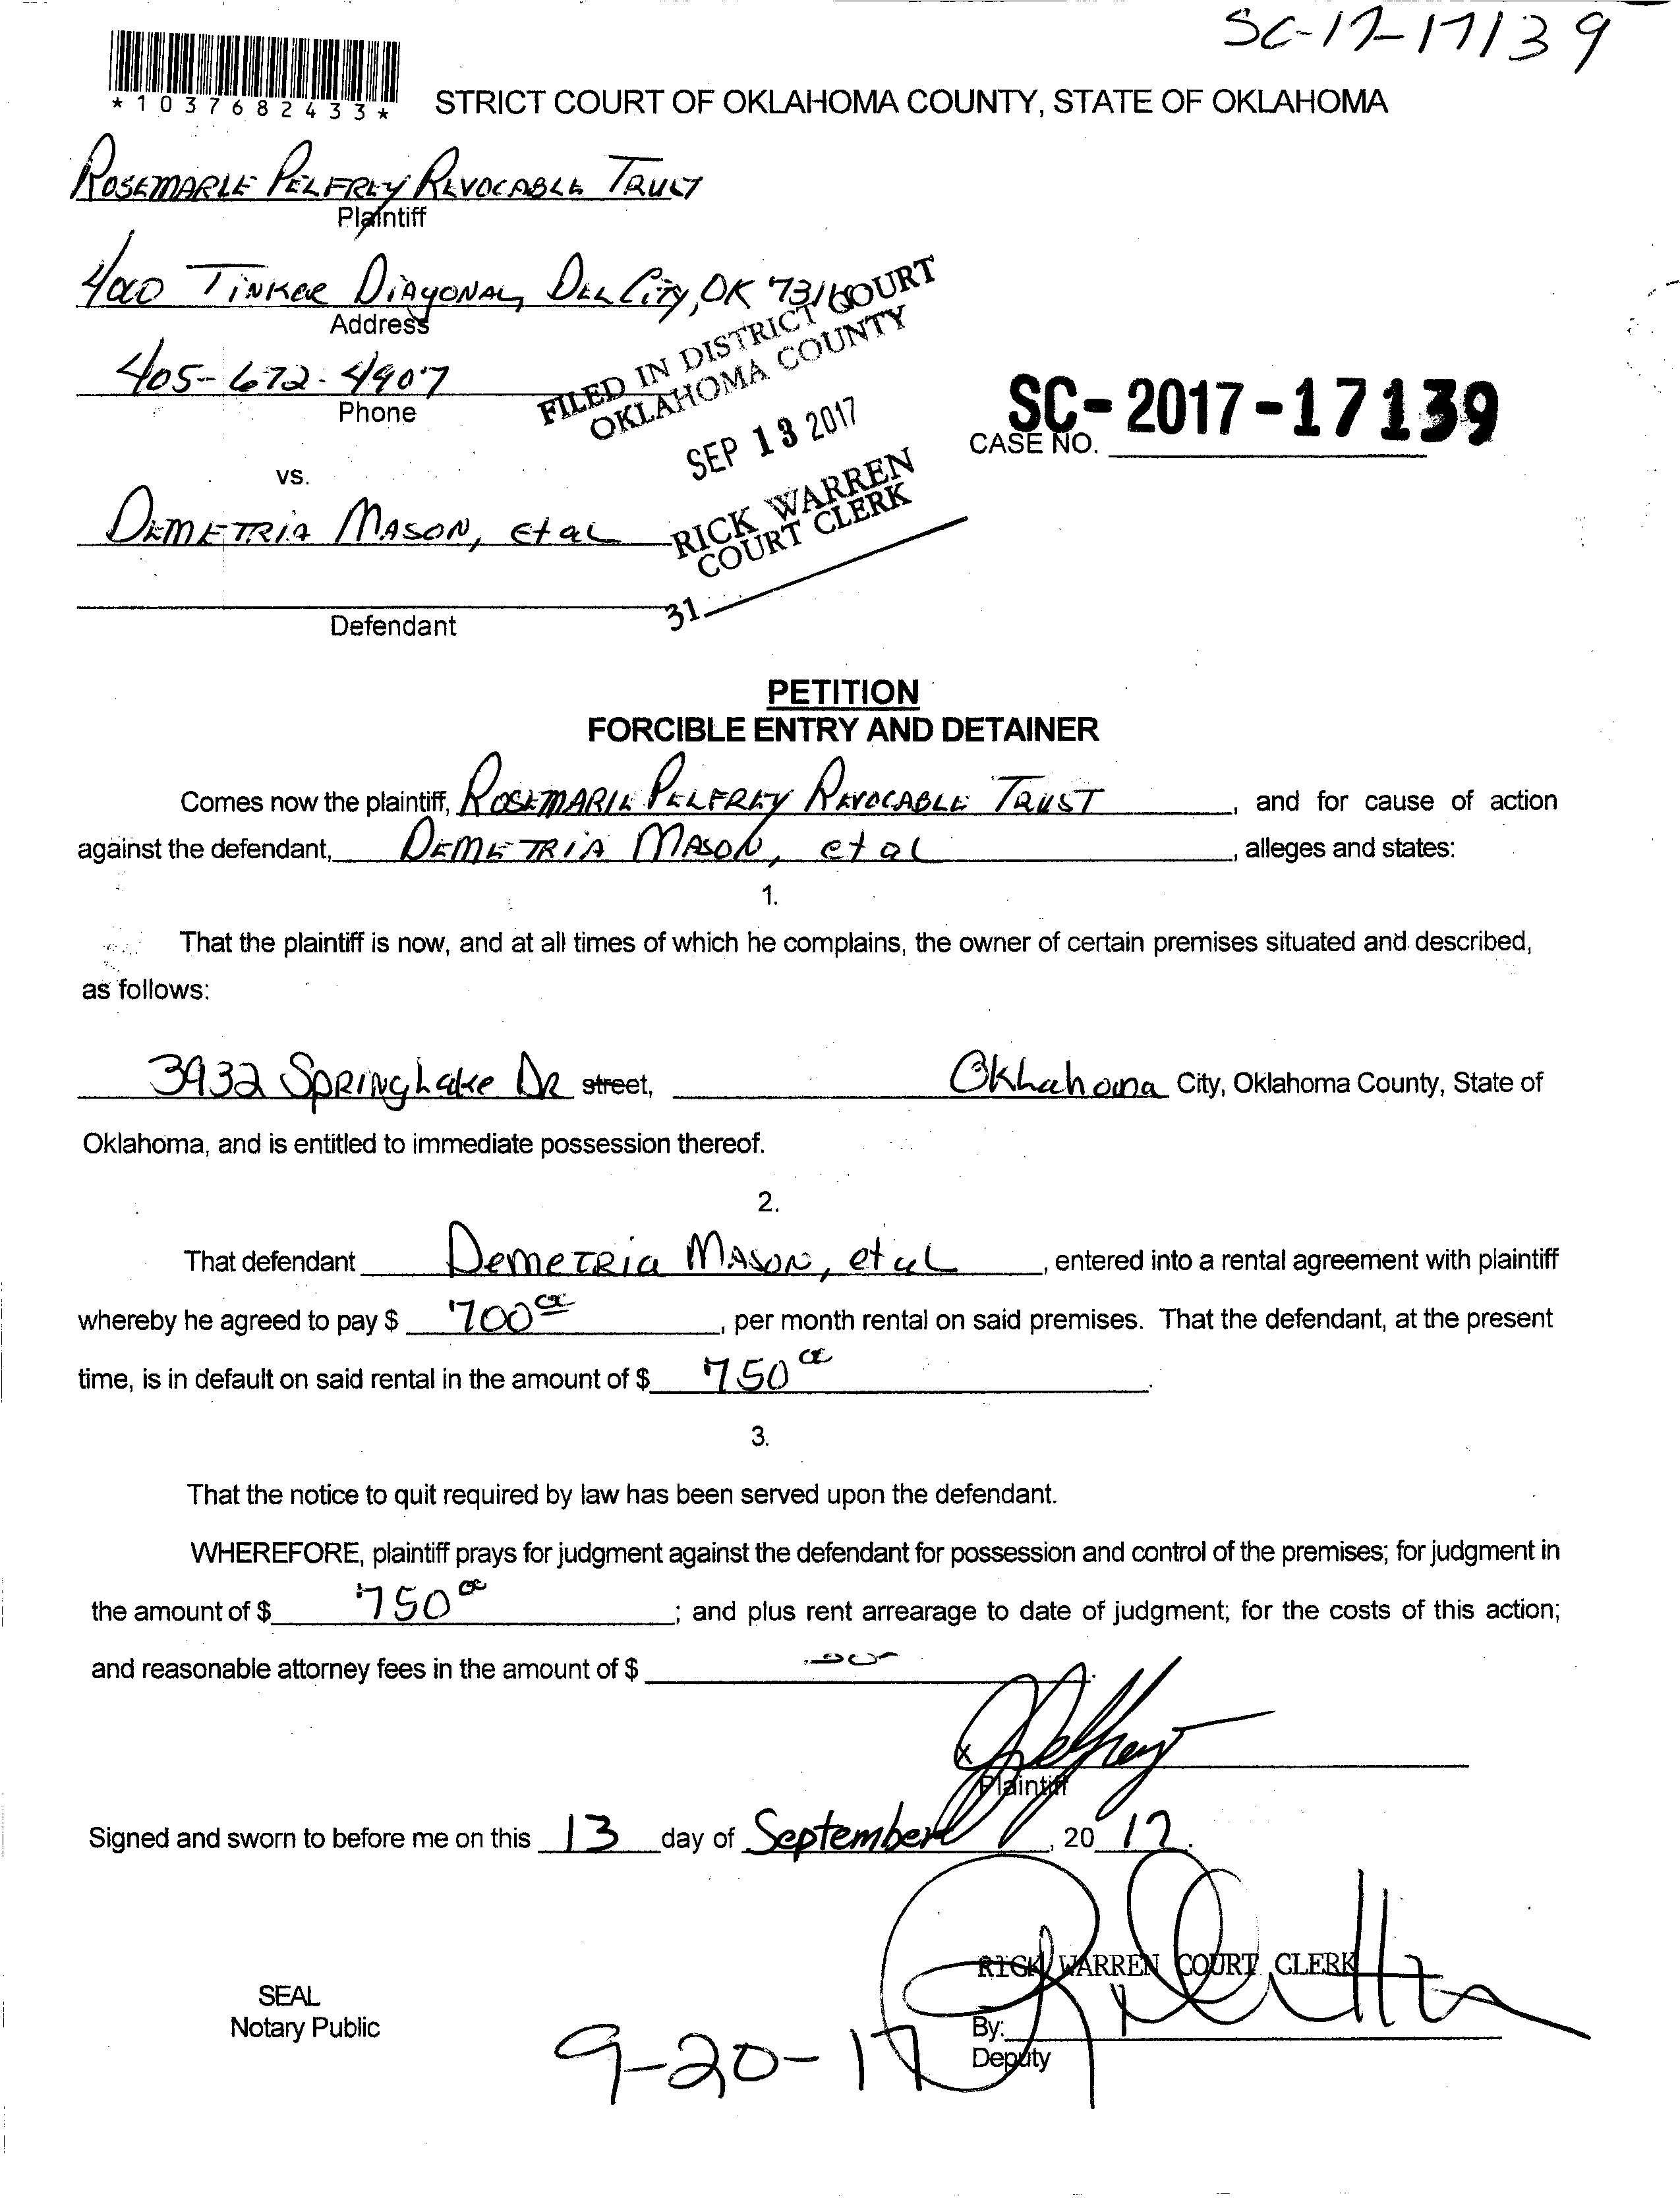 SC-17-17139
*1037682433*
STRICT COURT OF OKLAHOMA COUNTY, STATE OF OKLAHOMA
ROSEMARIE PELFREY REVOCABLE TRUST
Plaintiff
4000 TINKER DIAGONAL, DEL CITY, OK 731
Address
405-672-4907
Phone
FILED IN DISTRICT COURT
OKLAHOMA COUNTY
SEP 13 2017
RICK WARREN
COURT CLERK
31
SC-2017-17139
CASE NO.
vs.
DEMETRIA MASON, et al
Defendant
PETITION
FORCIBLE ENTRY AND DETAINER
Comes now the plaintiff, ROSEMARIE PELFREY REVOCABLE TRUST, and for cause of action
against the defendant, DEMETRIA MASON, et al, alleges and states:
1.
That the plaintiff is now, and at all times of which he complains, the owner of certain premises situated and described,
as follows:
3932 SPRINGLake DR street, Oklahoma City, Oklahoma County, State of
Oklahoma, and is entitled to immediate possession thereof.
2.
That defendant Demetria MASON, et al, entered into a rental agreement with plaintiff
whereby he agreed to pay $ 700 00, per month rental on said premises. That the defendant, at the present
time, is in default on said rental in the amount of $ 750 00.
3.
That the notice to quit required by law has been served upon the defendant.
WHEREFORE, plaintiff prays for judgment against the defendant for possession and control of the premises; for judgment in
the amount of $ 750 00; and plus rent arrearage to date of judgment; for the costs of this action;
and reasonable attorney fees in the amount of $
x
Plaintiff
Signed and sworn to before me on this 13 day of September, 20 17.
RICK WARREN COURT CLERK
SEAL
Notary Public
By:
Deputy
9-20-17